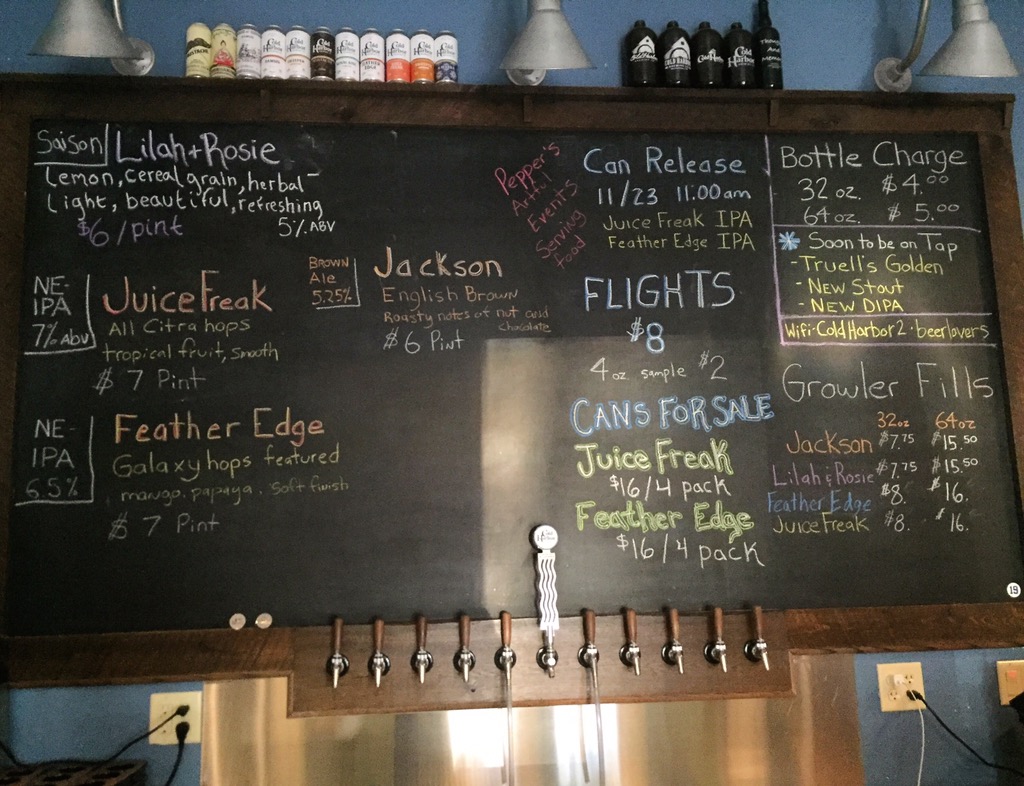 Saison
Lilah + Rosie
Lemon, cereal grain, herbal -
Light, beautiful, refreshing
$6 / pint
5% ABV
NE-
IPA
7% ABV
Juice Freak
All Citra hops
tropical fruit, smooth
$ 7 Pint
NE-
IPA
6.5%
Feather Edge
Galaxy hops featured
mango, papaya, soft finish
$ 7 Pint
Brown
Ale
5.25%
Jackson
English Brown
Roasty notes of nut and
chocolate
$ 6 Pint
Pepper's
Artful
Events
Serving
food
Can Release
11/23 11:00am
Juice Freak IPA
Feather Edge IPA
FLIGHTS
$8
4 oz. sample $2
CANS FOR SALE
Juice Freak
$16/4 pack
Feather Edge
$16/4 pack
Bottle Charge
32 oz. $4.00
64 oz. $5.00
Soon to be on Tap
- Truell's Golden
- New Stout
- New DIPA
Wifi - Cold Harbor 2 · beerlovers
Growler Fills
32oz 64oz
Jackson $7.75 $15.50
Lilah & Rosie $7.75 $15.50
Feather Edge $8. $16.
Juice Freak $8. $16.
19